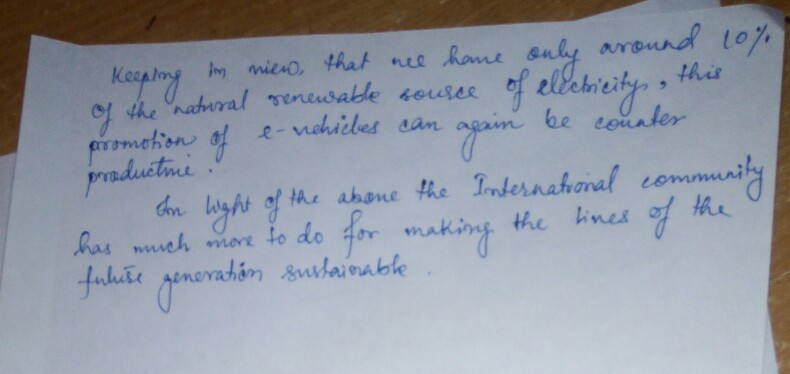 Keeping in view, that we have only around 10%
of the natural renewable source of electricity, this
promotion of e-vehicles can again be counter
productive.
In light of the above the International community
has much more to do for making the lives of the
future generation sustainable.